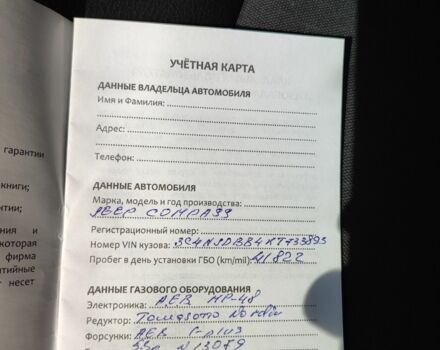 гарантии
книги;
нтии;
ния и
которая
фирма
нтийные
несет
УЧЁТНАЯ КАРТА
ДАННЫЕ ВЛАДЕЛЬЦА АВТОМОБИЛЯ
Имя и Фамилия:
Адрес:
Телефон:
ДАННЫЕ АВТОМОБИЛЯ
Марка, модель и год производства:
JEEP COMPASS
Регистрационный номер:
Номер VIN кузова:
Пробег в день установки ГБО (km/mil): 41822
ДАННЫЕ ГАЗОВОГО ОБОРУДОВАНИЯ
Электроника: AEB MP-48
Редуктор: Tomasetto
Форсунки: AEB